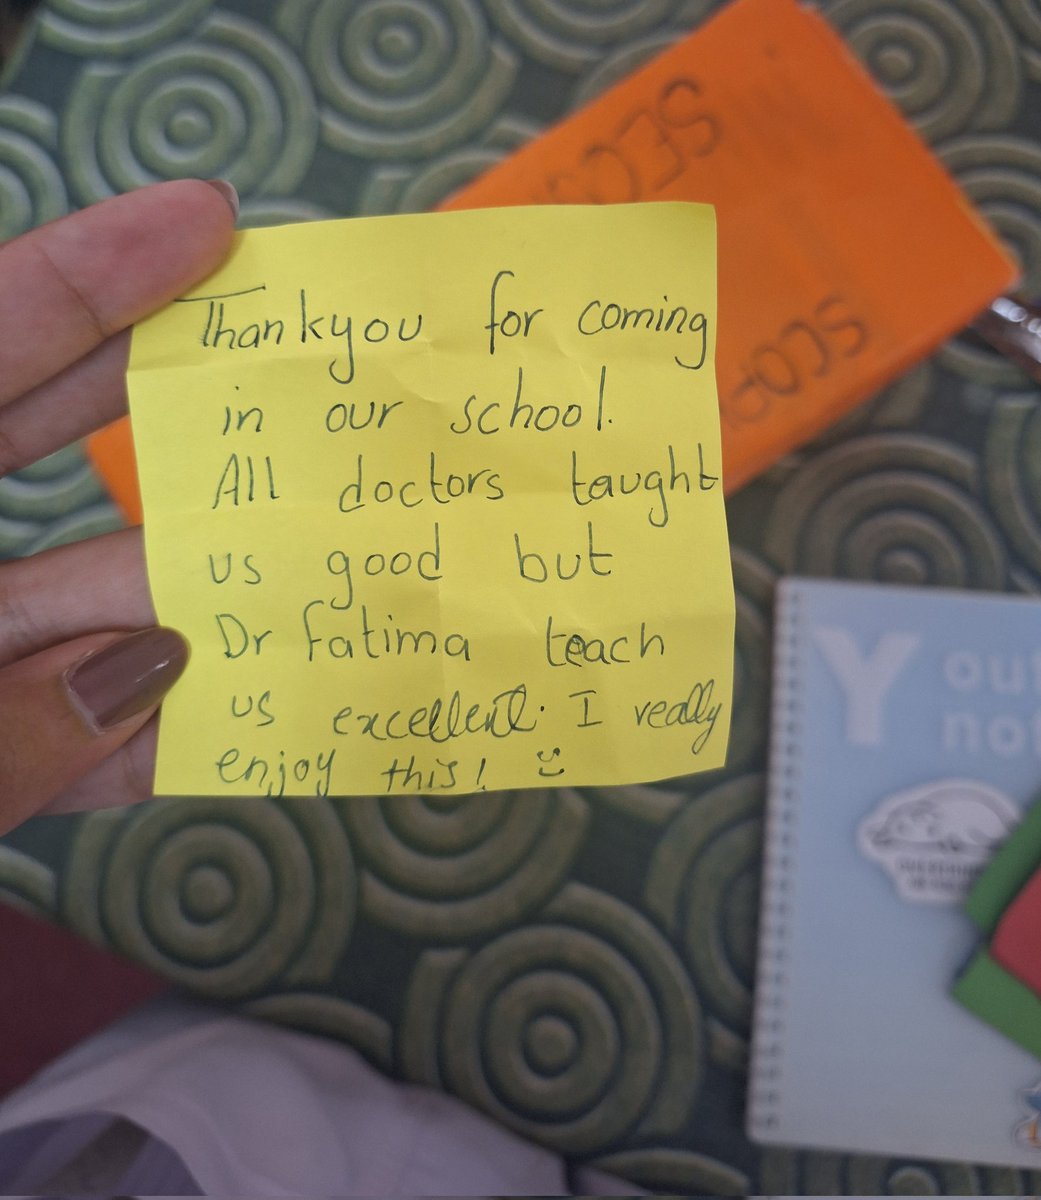 Thankyou for coming
in our school.
All doctors taught
us good but
Dr Fatima teach
us excellent. I really
enjoy this! :)
SECO
SCOP
Y
out
not